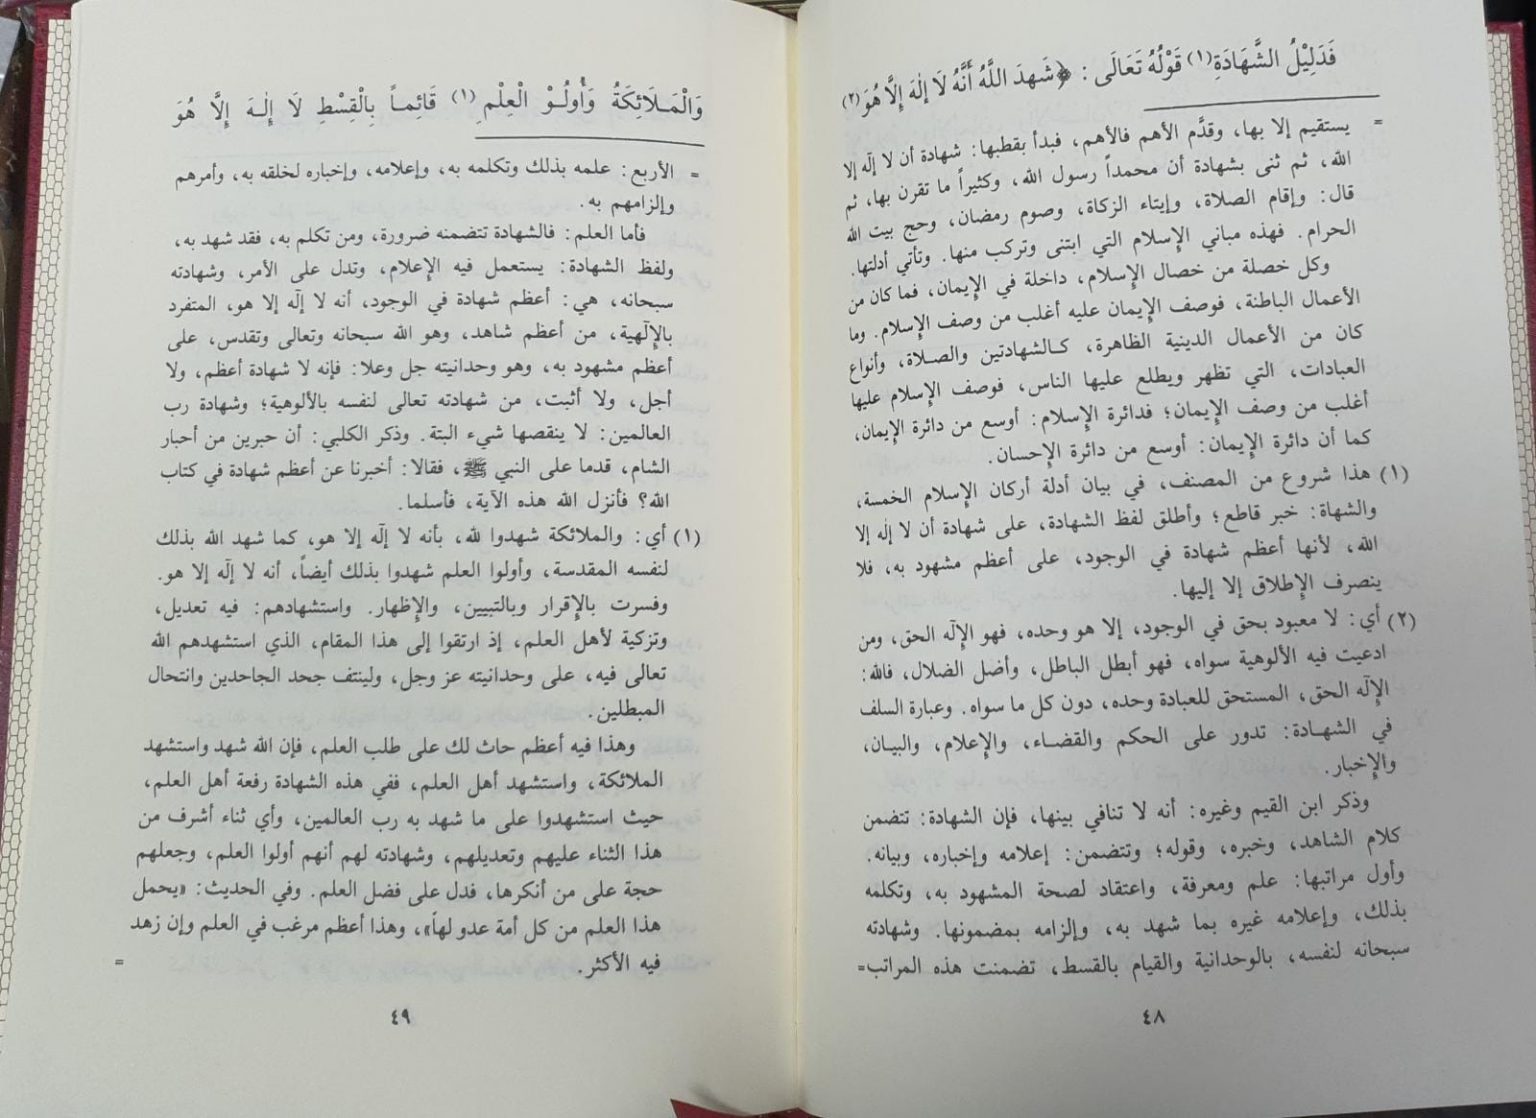 فَدَلِيْلُ الشَّهَادَةِ(١) قَوْلُهُ تَعَالَى: ﴿شَهِدَ اللَّهُ أَنَّهُ لَا إِلٰهَ إِلَّا هُوَ(٢)
= يستقيم إلا بها، وقدَّم الأهم فالأهم، فبدأ بقطبها: شهادة أن لا إلٰه إلا
الله، ثم ثنى بشهادة أن محمداً رسول الله، وكثيراً ما تقرن بها، ثم
قال: وإقام الصلاة، وإيتاء الزكاة، وصوم رمضان، وحج بيت الله
الحرام. فهذه مباني الإسلام التي ابتنى وتركب منها. وتأتي أدلتها.
وكل خصلة من خصال الإسلام، داخلة في الإيمان، فما كان من
الأعمال الباطنة، فوصف الإيمان عليه أغلب من وصف الإسلام. وما
كان من الأعمال الدينية الظاهرة، كالشهادتين والصلاة، وأنواع
العبادات، التي تظهر ويطلع عليها الناس، فوصف الإسلام عليها
أغلب من وصف الإيمان؛ فدائرة الإسلام: أوسع من دائرة الإيمان،
كما أن دائرة الإيمان: أوسع من دائرة الإحسان.
(١) هذا شروع من المصنف، في بيان أدلة أركان الإسلام الخمسة،
والشهاة: خبر قاطع؛ وأطلق لفظ الشهادة، على شهادة أن لا إلٰه إلا
الله، لأنها أعظم شهادة في الوجود، على أعظم مشهود به، فلا
ينصرف الإطلاق إلا إليها.
(٢) أي: لا معبود بحق في الوجود، إلا هو وحده، فهو الإلٰه الحق، ومن
ادعيت فيه الألوهية سواه، فهو أبطل الباطل، وأضل الضلال، فالله:
الإلٰه الحق، المستحق للعبادة وحده، دون كل ما سواه. وعبارة السلف
في الشهادة: تدور على الحكم والقضاء، والإعلام، والبيان،
والإخبار.
وذكر ابن القيم وغيره: أنه لا تنافي بينها، فإن الشهادة: تتضمن
كلام الشاهد، وخبره، وقوله؛ وتتضمن: إعلامه وإخباره، وبيانه.
وأول مراتبها: علم ومعرفة، واعتقاد لصحة المشهود به، وتكلمه
بذلك، وإعلامه غيره بما شهد به، وإلزامه بمضمونها. وشهادته
سبحانه لنفسه، بالوحدانية والقيام بالقسط، تضمنت هذه المراتب=
٤٨
وَالْمَلَائِكَةُ وَأُولُوْ الْعِلْمِ(١) قَائِماً بِالْقِسْطِ لَا إِلـٰهَ إِلَّا هُوَ
= الأربع: علمه بذلك وتكلمه به، وإعلامه، وإخباره لخلقه به، وأمرهم
وإلزامهم به.
فأما العلم: فالشهادة تتضمنه ضرورة، ومن تكلم به، فقد شهد به،
ولفظ الشهادة: يستعمل فيه الإعلام، وتدل على الأمر، وشهادته
سبحانه، هي: أعظم شهادة في الوجود، أنه لا إلٰه إلا هو، المتفرد
بالإلٰهية، من أعظم شاهد، وهو الله سبحانه وتعالى وتقدس، على
أعظم مشهود به، وهو وحدانيته جل وعلا: فإنه لا شهادة أعظم، ولا
أجل، ولا أثبت، من شهادته تعالى لنفسه بالألوهية؛ وشهادة رب
العالمين: لا ينقصها شيء البتة. وذكر الكلبي: أن حبرين من أحبار
الشام، قدما على النبي ﷺ، فقالا: أخبرنا عن أعظم شهادة في كتاب
الله؟ فأنزل الله هذه الآية، فأسلما.
(١) أي: والملائكة شهدوا لله، بأنه لا إلٰه إلا هو، كما شهد الله بذلك
لنفسه المقدسة، وأولوا العلم شهدوا بذلك أيضاً، أنه لا إلٰه إلا هو.
وفسرت بالإقرار وبالتبيين، والإظهار. واستشهادهم: فيه تعديل،
وتزكية لأهل العلم، إذ ارتقوا إلى هذا المقام، الذي استشهدهم الله
تعالى فيه، على وحدانيته عز وجل، ولينتف جحد الجاحدين وانتحال
المبطلين.
وهذا فيه أعظم حاث لك على طلب العلم، فإن الله شهد واستشهد
الملائكة، واستشهد أهل العلم، ففي هذه الشهادة رفعة أهل العلم،
حيث استشهدوا على ما شهد به رب العالمين، وأي ثناء أشرف من
هذا الثناء عليهم وتعديلهم، وشهادته لهم أنهم أولوا العلم، وجعلهم
حجة على من أنكرها، فدل على فضل العلم. وفي الحديث: «يحمل
هذا العلم من كل أمة عدو لها»، وهذا أعظم مرغب في العلم وإن زهد
فيه الأكثر. =
٤٩